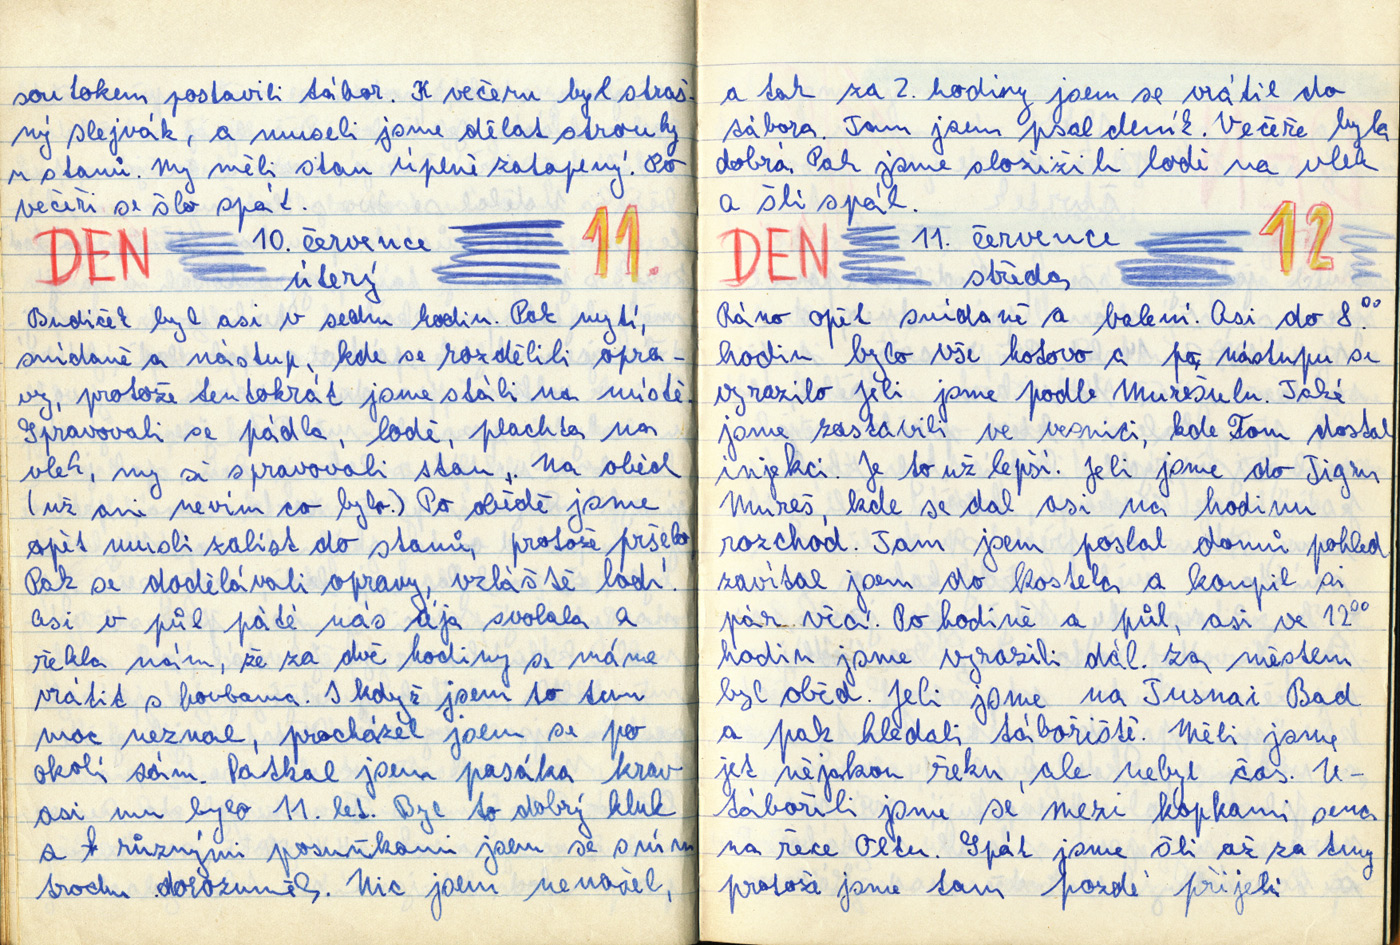 soutokem postavili tábor. K večeru byl straš-
ný slejvák, a museli jsme dělat strouhy
u stanů. My měli stan úplně zatapený. Po
večeři se šlo spát.
DEN 10. července 11.
úterý
Budíček byl asi v sedm hodin. Pak mytí,
snídaně a nástup, kde se rozdělili opra-
vy, protože tentokrát jsme stáli na místě.
Spravovali se pádla, lodě, plachta na
vlek, my si spravovali stan. Na oběd
(už ani nevím co bylo.) Po obědě jsme
opět musli zalíst do stanů, protože pršelo
Pak se dodělávali opravy, vzláště lodí.
Asi v půl páté nás Ája svolala a
řekla nám, že za dvě hodiny se máme
vrátit s houbama. I když jsem to tam
moc neznal, procházel jsem se po
okolí sám. Potkal jsem pasáka krav
asi mu bylo 11. let. Byl to dobrý kluk
a různými posuňkami jsem se s ním
trochu dorozuměl. Nic jsem nenašel,
a tak za 2. hodiny jsem se vrátil do
tábora. Tam jsem psal deník. Večeře byla
dobrá. Pak jsme složili lodě na vlek
a šli spát.
DEN 11. července 12
středa
Ráno opět snídaně a balení. Asi do 8.00
hodin bylo vše hotovo a po nástupu se
vyrazilo Jeli jsme podle Murešulu. Také
jsme zastavili ve vesnici, kde Tom dostal
injekci. Je to už lepší. Jeli jsme do Tigru
Mureš, kde se dal asi na hodinu
rozchod. Tam jsem poslal domů pohled
zavítal jsem do kostela a koupil si
pár věcí. Po hodině a půl, asi ve 12 00
hodin jsme vyrazili dál. Za městem
byl oběd. Jeli jsme na Tusnai Bad
a pak hledali tábořiště. Měli jsme
jet nějakou řeku, ale nebyl čas. U-
tábořili jsme se mezi kopkami sena
na řece Oltu. Spát jsme šli až za tmy
protože jsme tam pozdě přijeli